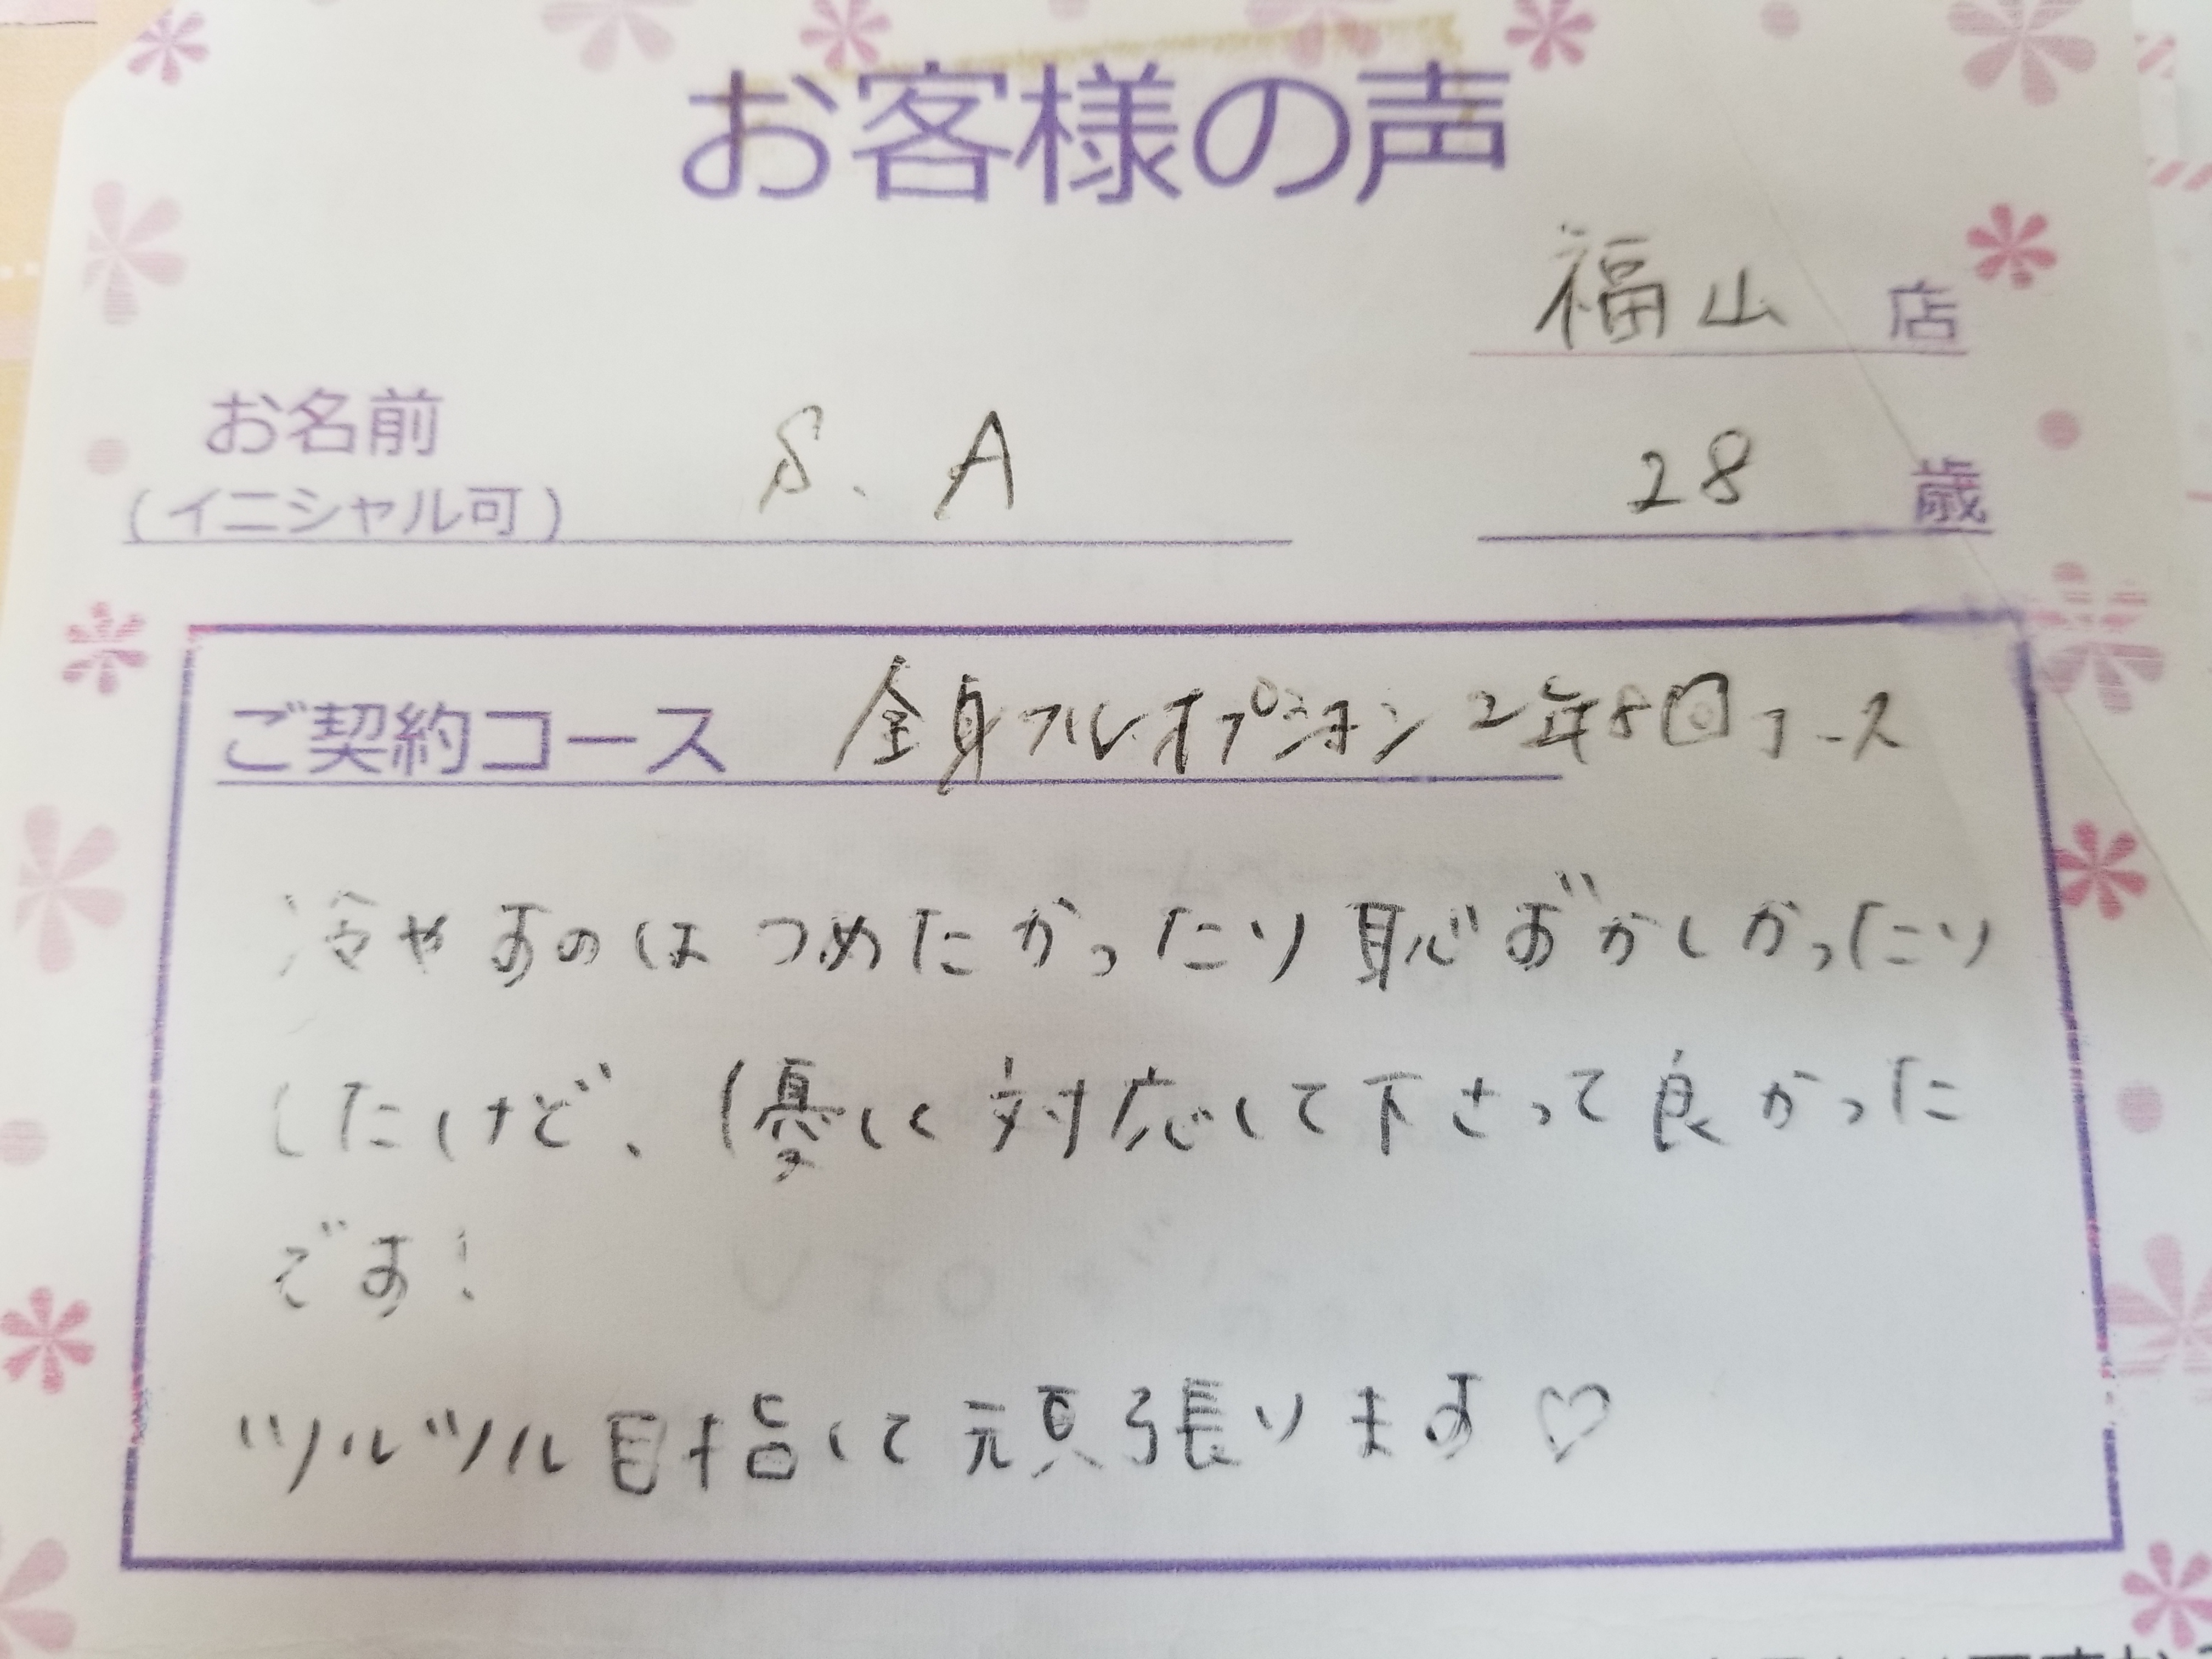 お客様の声
福山 店
お名前
(イニシャル可) S. A 28 歳
ご契約コース 全身フルオプション2年8回コース
冷やすのはつめたかったり恥ずかしかったり
したけど、優しく対応して下さって良かった
です!
ツルツル目指して頑張ります♡